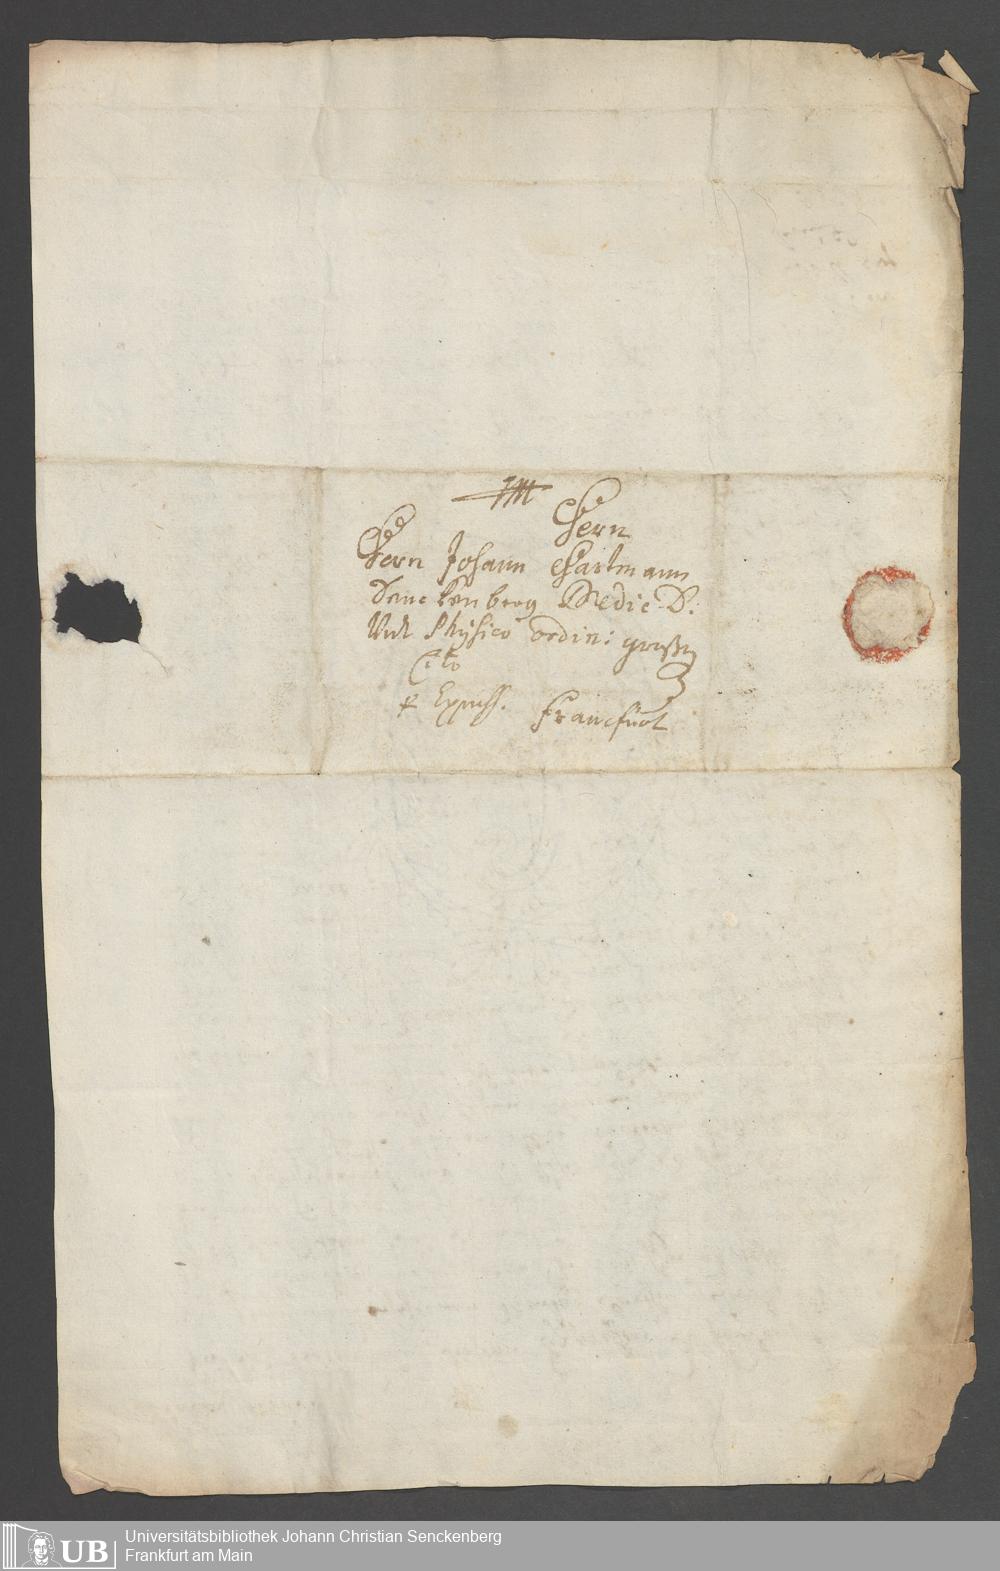 Herrn
Herrn Johann Hartmann
Senckenberg Medic. D.
Und Physico ordin:
Cito
p Express.
Francfurt
UB
Universitätsbibliothek Johann Christian Senckenberg
Frankfurt am Main